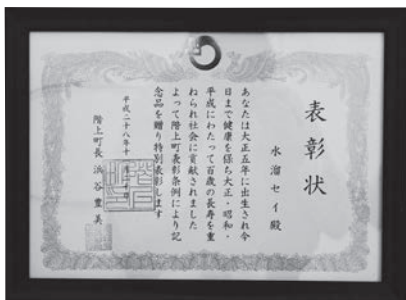 表彰状
水溜セイ殿
あなたは大正五年に出生され今
日まで健康を保ち大正・昭和・
平成にわたって百歳の長寿を重
ねられ社会に貢献されました
よって階上町表彰条例により記
念品を贈り特別表彰します
平成二十八年十
階上町長 浜谷豊美